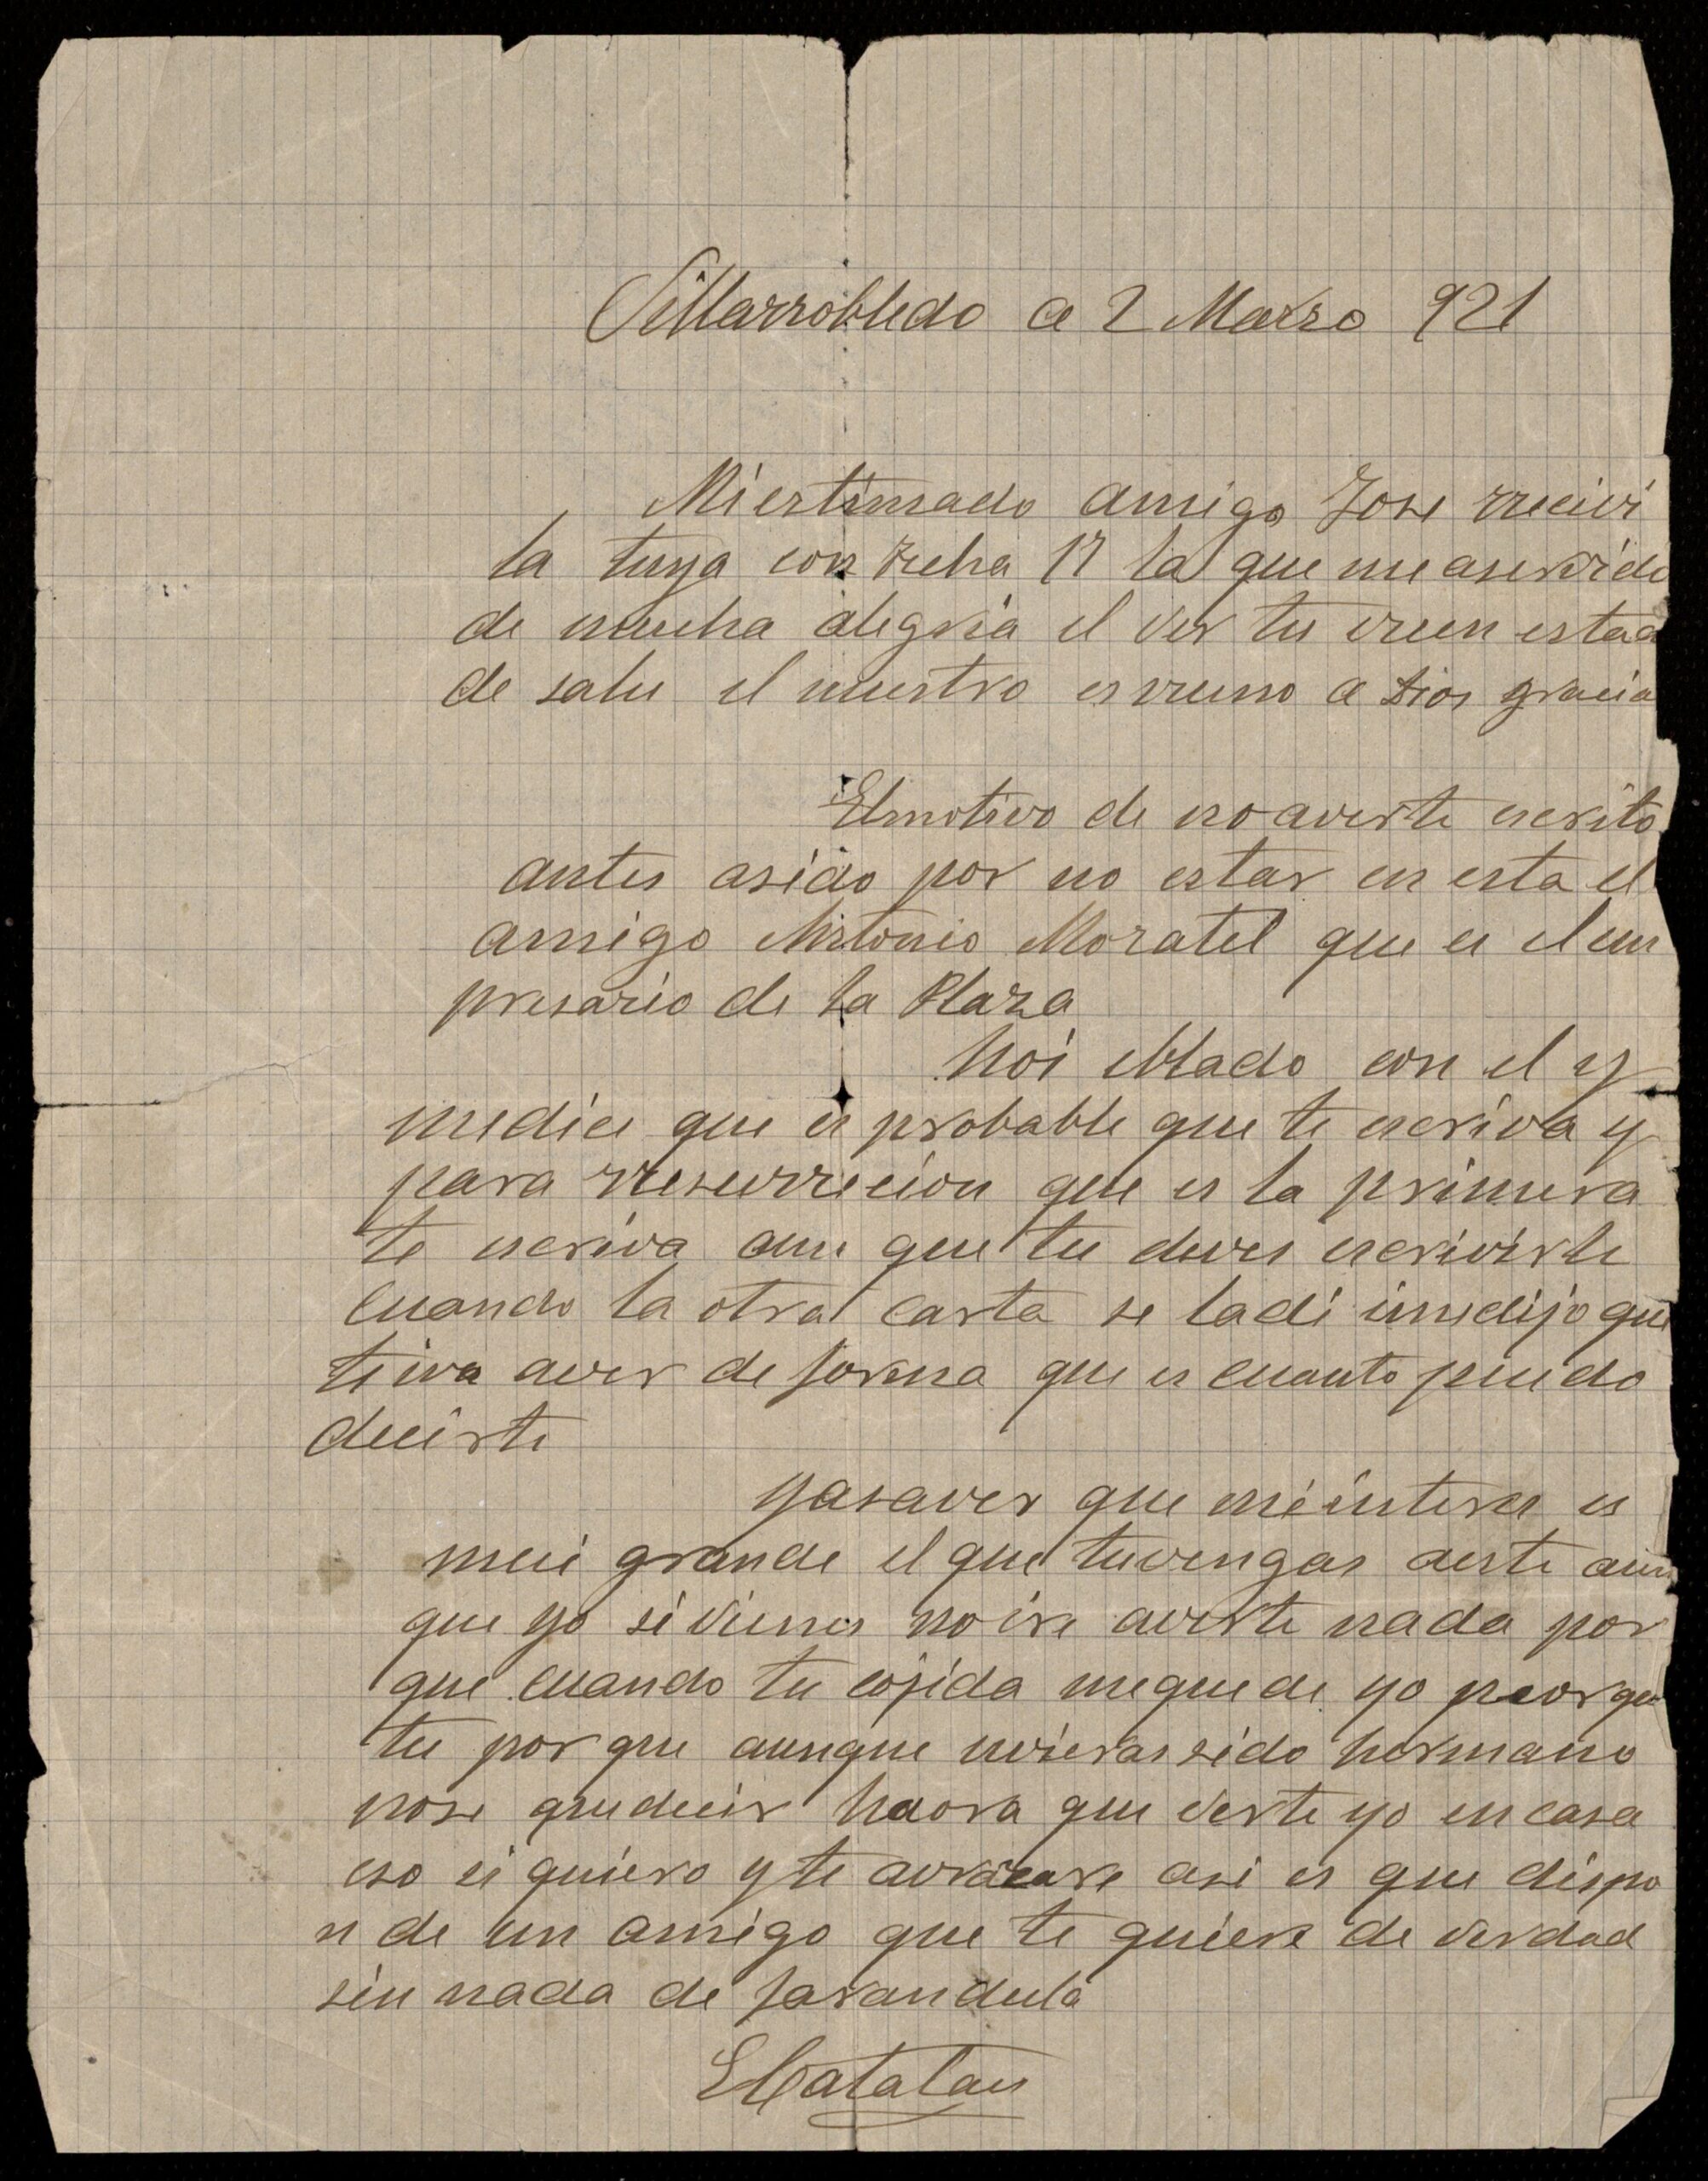 Villarrobledo a 2 Marzo 921
Mi estimado amigo Jose rrecivi
la tuya con fecha 17 la que me aservido
de mucha alegria el ver tu vuen estad
de salu el nuestro es vueno a Dios gracia
El motivo de no averte escrito
antes asido por no estar en esta el
amigo Antonio Moratel que es el em
presario de la Plaza
hoi eblado con el y
medice que es probable que te escriva y
para rresurrecion que es la primera
te escriva aun que tu deves escrivirle
cuando la otra carta se ladi imedijo que
teiva aver de forma que es cuanto puedo
decirte
yasaves que miinteres es
mui grande el que tuvengas aeste aun
que yo si vienes no ire averte nada por
que cuando tu cojida mequede yo peor que
tu por que aunque uvieras sido hermano
nose quedecir haora que verte yo en casa
eso si quiero y te avrazare asi es que dispo
n de un amigo que te quiere de verdad
sin nada de farandula
El Catalan